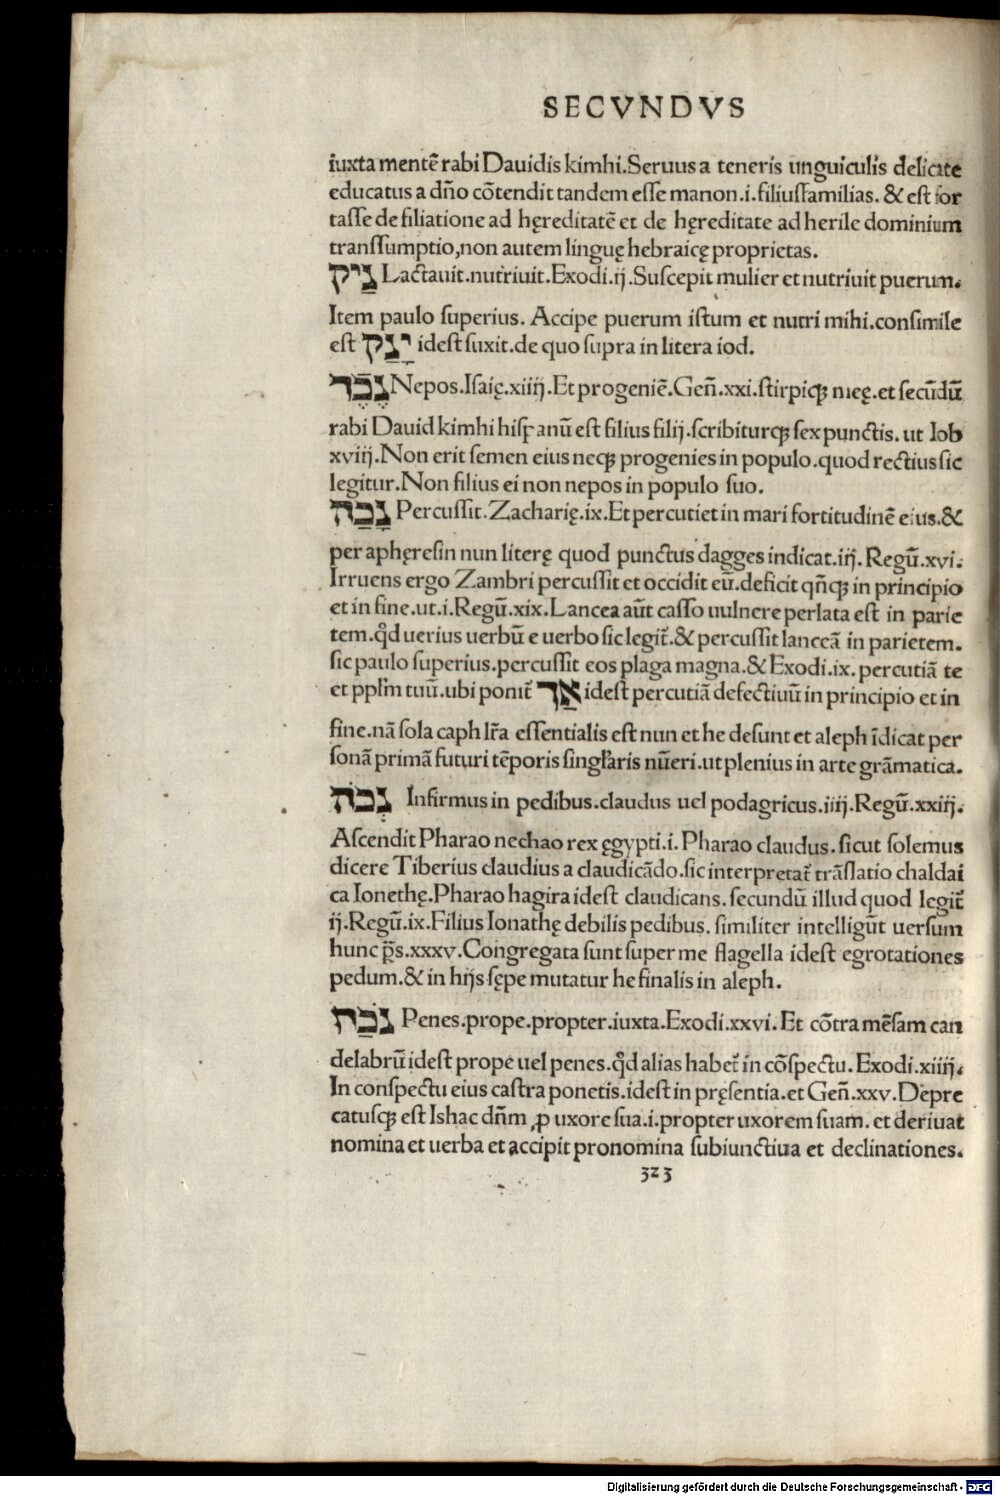 SECVNDVS
iuxta mentē rabi Dauidis kimhi.Seruus a teneris unguiculis delicate
educatus a dño cōtendit tandem esse manon.i.filiusfamilias. & est for
tasse de filiatione ad hęreditatē et de hęreditate ad herile dominium
transsumptio,non autem linguę hebraicę proprietas.
נַיק Lactauit.nutriuit.Exodi.ij.Suscepit mulier et nutriuit puerum.
Item paulo superius. Accipe puerum istum et nutri mihi.consimile
est יָנַק idest suxit.de quo supra in litera iod.
נֶכֶד Nepos.Isaię.xiiij.Et progeniē.Geñ.xxi.stirpiqꝫ meę.et secūdū
rabi Dauid kimhi hispanū est filius filij.scribiturqꝫ sex punctis. ut Iob
xviij.Non erit semen eius neqꝫ progenies in populo.quod rectius sic
legitur.Non filius ei non nepos in populo suo.
נָכַה Percussit.Zacharię.ix.Et percutiet in mari fortitudinē eius.&
per aphęresin nun literę quod punctus dagges indicat.iij. Regū.xvi.
Irruens ergo Zambri percussit et occidit eū.deficit qñqꝫ in principio
et in fine.ut.i.Regū.xix.Lancea aūt casso uulnere perlata est in parie
tem.qd̄ uerius uerbū e uerbo sic legit̄.& percussit lanceā in parietem.
sic paulo superius.percussit eos plaga magna.& Exodi.ix. percutiā te
et pplm̄ tuū.ubi ponit̄ אַך idest percutiā defectiuū in principio et in
fine.nā sola caph lr̄a essentialis est nun et he desunt et aleph īdicat per
sonā primā futuri tēporis singl̄aris nūeri.ut plenius in arte grāmatica.
נְכֹה Infirmus in pedibus.claudus uel podagricus.iiij.Regū.xxiij.
Ascendit Pharao nechao rex ęgypti.i.Pharao claudus.sicut solemus
dicere Tiberius claudius a claudicādo.sic interpretat̄ trāslatio chaldai
ca Ionethę.Pharao hagira idest claudicans. secundū illud quod legit̄
ij.Regū.ix.Filius Ionathę debilis pedibus. similiter intelligūt uersum
hunc p̄s.xxxv.Congregata sunt super me flagella idest egrotationes
pedum.& in hijs sępe mutatur he finalis in aleph.
נֹכַח Penes.prope.propter.iuxta.Exodi.xxvi.Et cōtra mēsam can
delabrū idest prope uel penes.qd̄ alias habet̄ in cōspectu. Exodi.xiiij.
In conspectu eius castra ponetis.idest in pręsentia.et Geñ.xxv.Depre
catusqꝫ est Ishac dñm ꝓ uxore sua.i.propter uxorem suam. et deriuat
nomina et uerba et accipit pronomina subiunctiua et declinationes.
323
Digitalisierung gefördert durch die Deutsche Forschungsgemeinschaft - DFG